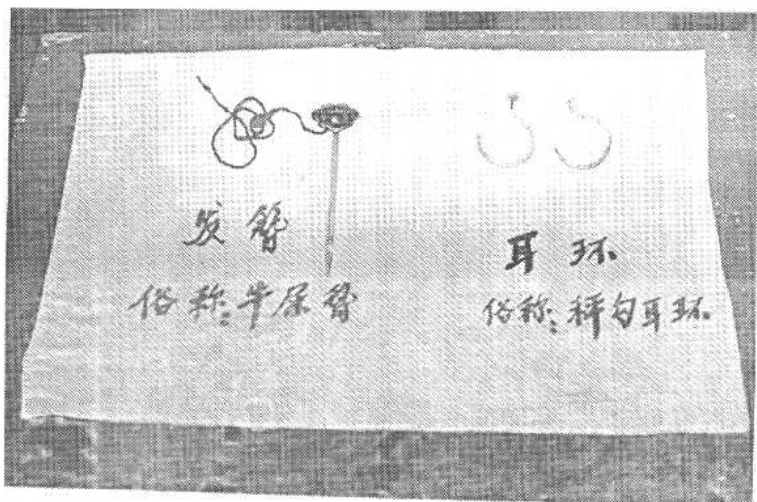 发簪
俗称:牛屎簪
耳环
俗称:秤勾耳环